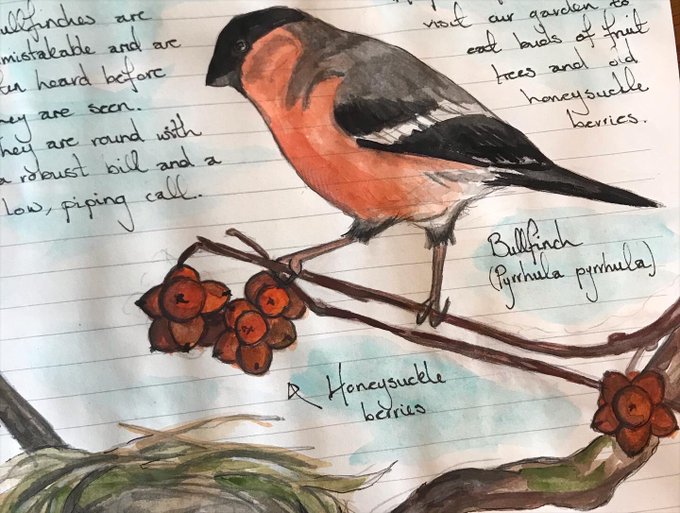 ullfinches are
mistakable and are
heard before
hey are seen..
hey are round with
a robust bill and a
low, piping call..
visit our garden to
eat buds of fruit
trees and old
honeysuckle
berries.
Bullfinch
(Pyrrhula pyrrhula)
Honeysuckle
berries